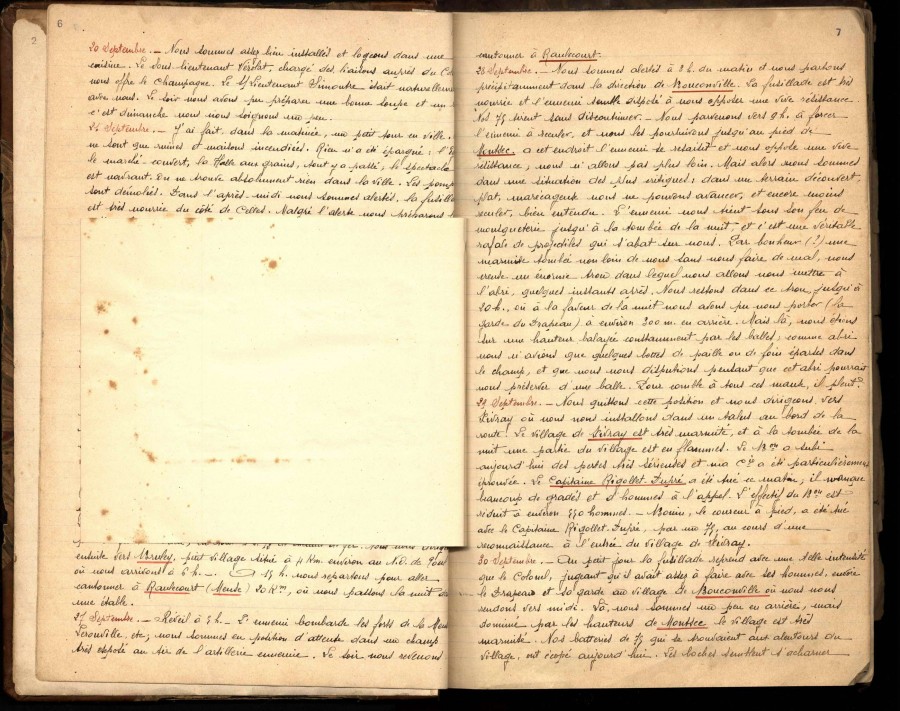 6
20 Septembre. — Nous sommes assez bien installés et logeons dans une
cuisine. Le Sous-lieutenant chargé des liaisons auprès du
nous offre le champagne. Le S/Lieutenant Simoutre était
avec nous. Le soir nous avons pu préparer une bonne soupe et
c'est dimanche nous nous soignons un peu.
J'ai fait, dans la matinée, un petit tour en ville.
ne sont que ruines et maisons incendiées. Rien n'a été épargné :
le marché couvert, la Halle aux grains, tout y a passé, le spectacle
est navrant. On ne trouve absolument rien dans la ville. Les
sont démolies. Dans l'après-midi nous sommes alertés, la
est très nourrie du côté de Celles. Malgré l'alerte nous préparons
ensuite vers Bruley, petit village situé à 4 Km. environ au N.O. de Toul
où nous arrivons à 6 h. — 15 h. nous repartons pour aller
cantonner à Raulecourt (Meuse) 20 Kms, où nous passons la nuit
une étable.
27 Septembre. — Réveil à 5 h — L'ennemi bombarde les forts de la
Liouville, etc; nous sommes en position d'attente dans un champ
très exposé au tir de l'artillerie ennemie. Le soir nous revenons
7
cantonner à Raulecourt.
28 Septembre. — Nous sommes alertés à 2 h. du matin et nous partons
précipitamment dans la direction de Bouconville. La fusillade est très
nourrie et l'ennemi semble disposé à nous opposer une vive résistance.
Nos 75 tirent sans discontinuer. — Nous parvenons vers 9 h. à forcer
l'ennemi à reculer, et nous les poursuivons jusqu'au pied de
Montsec. à cet endroit l'ennemi se ressaisit et nous oppose une vive
résistance, nous n'allons pas plus loin. Mais alors nous sommes
dans une situation des plus critiques : dans un terrain découvert,
plat, marécageux nous ne pouvons avancer, et encore moins
reculer, bien entendu. L'ennemi nous tient sous son feu de
mousqueterie jusqu'à la tombée de la nuit, et c'est une véritable
rafale de projectiles qui s'abat sur nous. Par bonheur (!) une
marmite tombée non loin de nous sans nous faire de mal, nous
creuse un énorme trou dans lequel nous allons nous mettre à
l'abri, quelques instants après. Nous restons dans ce trou, jusqu'à
20 h., où à la faveur de la nuit nous avons pu nous porter (la
garde du Drapeau) à environ 200 m. en arrière. Mais là, nous étions
sur une hauteur balayée constamment par les balles; comme abri
nous n'avions que quelques bottes de paille ou de foin éparses dans
le champ, et que nous nous disputions pensant que cet abri pourrait
nous préserver d'une balle. Pour comble à tous ces maux, il pleut.
29 Septembre. — Nous quittons cette position et nous dirigeons vers
Xivray où nous nous installons dans un talus au bord de la
route. Le village de Xivray est très marmité, et à la tombée de la
nuit une partie du village est en flammes. Le Bon a subi
aujourd'hui des pertes très sérieuses et ma Cie a été particulièrement
éprouvée. Le Capitaine Rigollet-Dupré a été tué ce matin; il manque
beaucoup de gradés et d'hommes à l'appel. L'effectif du Bon est
réduit à environ 550 hommes. — Bouin, le coureur à pied, a été tué
avec le Capitaine Rigollet-Dupré, par un 75, au cours d'une
reconnaissance à l'entrée du village de Xivray.
30 Septembre. — Au petit jour la fusillade reprend avec une telle intensité
que le Colonel, jugeant qu'il avait assez à faire avec ses hommes, envoie
le Drapeau et sa garde au village de Bouconville où nous nous
rendons vers midi. Là, nous sommes un peu en arrière, mais
dominé par les hauteurs de Montsec le village est très
marmité. Nos batteries de 75 qui se trouvaient aux alentours du
village, ont écopé aujourd'hui. Les boches semblent s'acharner